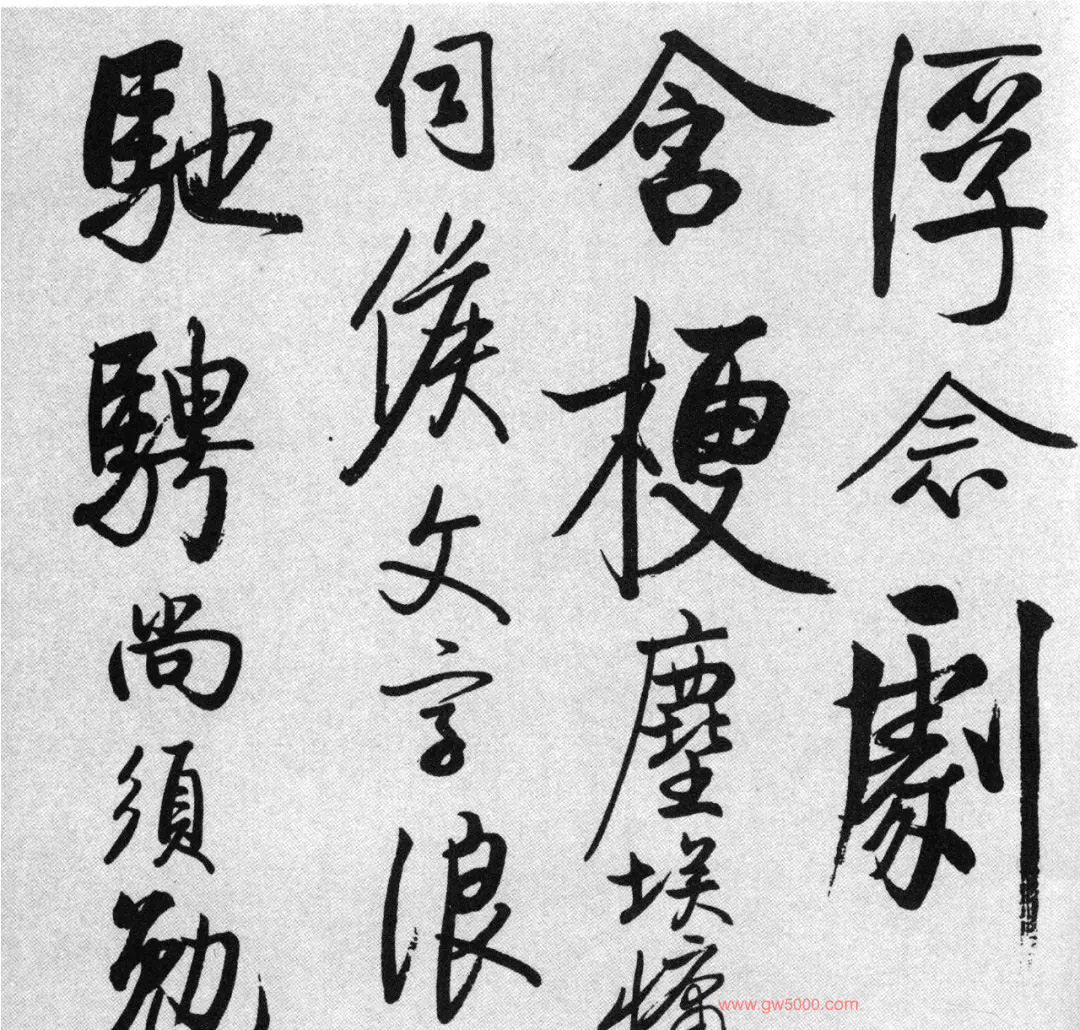 浮念劇
含梗塵埃慵
伺候文字浪
馳騁尚須勉
www.gw5000.com